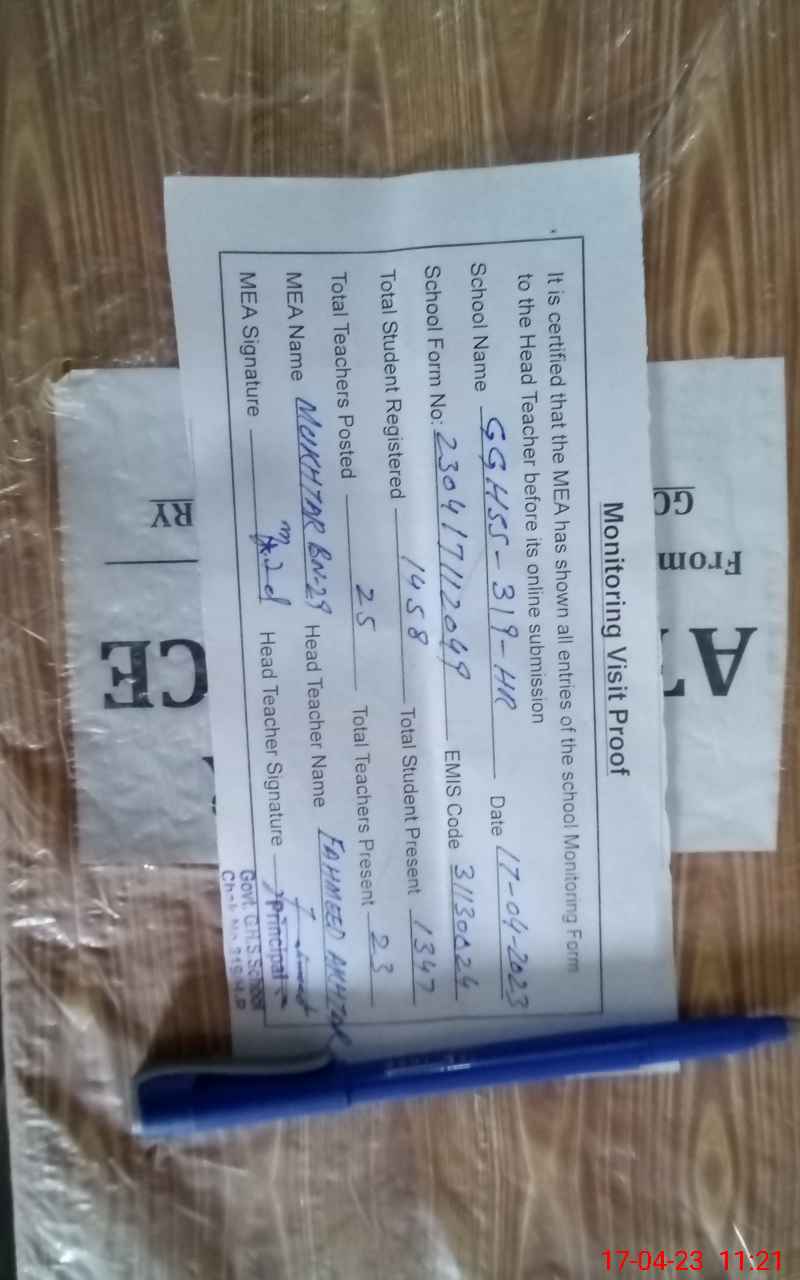 Monitoring Visit Proof
It is certified that the MEA has shown all entries of the school Monitoring Form
to the Head Teacher before its online submission
School Name GGHSS-319-HR Date 17-04-2023
School Form No: 230417112049 EMIS Code 31130024
Total Student Registered 1458 Total Student Present 1347
Total Teachers Posted 25 Total Teachers Present 23
MEA Name MUKHTAR BN-29 Head Teacher Name FAHMEED AKHTAR
MEA Signature Head Teacher Signature
Principal
Govt. G.H.S School
Chak No 319 H.R
GO
From
AT
RY
CE
17-04-23 11:21